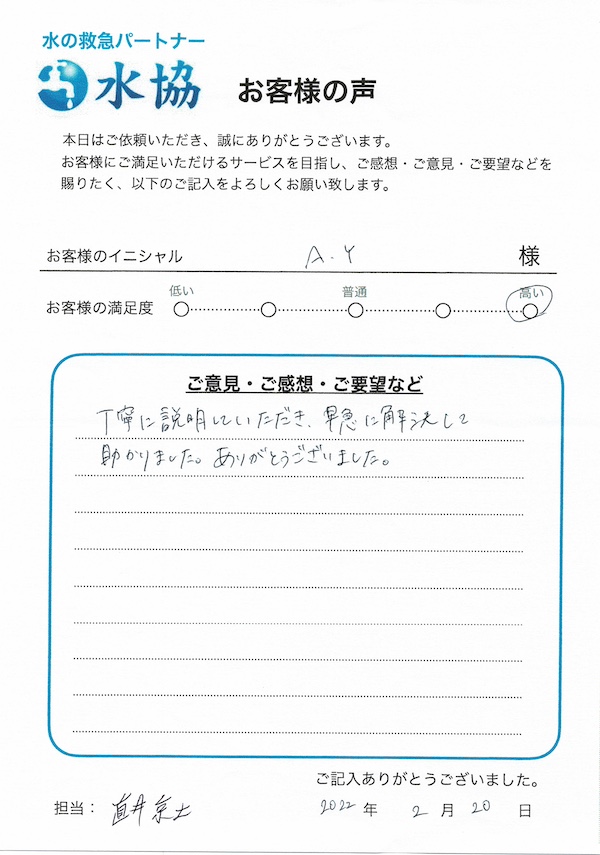 水の救急パートナー
水協 お客様の声
本日はご依頼いただき、誠にありがとうございます。
お客様にご満足いただけるサービスを目指し、ご感想・ご意見・ご要望などを
賜りたく、以下のご記入をよろしくお願い致します。
お客様のイニシャル A.Y 様
低い 普通 高い
お客様の満足度
ご意見・ご感想・ご要望など
丁寧に説明していただき、早急に解決して
助かりました。ありがとうございました。
ご記入ありがとうございました。
担当: 2022 年 2 月 20 日